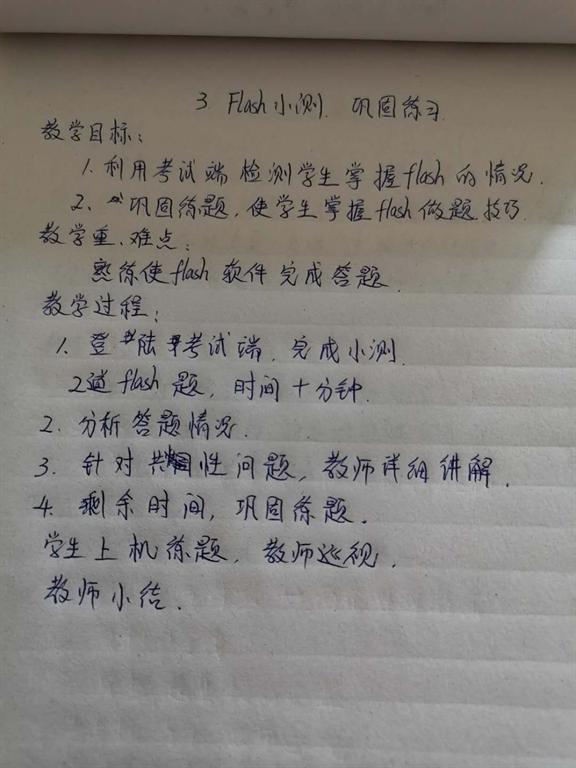 3 Flash小测. 巩固练习.
教学目标:
1. 利用考试端检测学生掌握flash的情况.
2、巩固练题,使学生掌握flash做题技巧.
教学重、难点:
熟练使flash软件完成答题.
教学过程:
1. 登陆考试端. 完成小测.
2道flash题,时间十分钟.
2. 分析答题情况.
3. 针对共性问题,教师详细讲解.
4. 剩余时间,巩固练题.
学生上机练题,教师巡视.
教师小结.